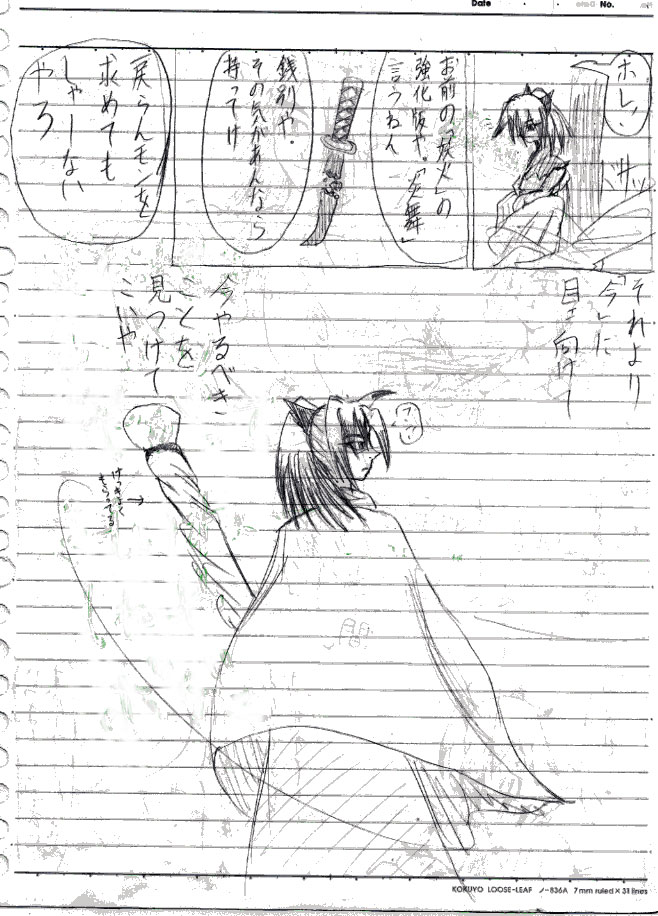 Date
No.
ホレ、
ドサッ
お前の「炎火」の
強化版や。「炎舞」
言うねん
餞別や。
その気があんなら
持ってけ
戻らんモンを
求めても
しゃーない
やろ
それより
「今」に
目ェ向けて
今やるべき
ことを
見つけて
こいや
けっきょく
もらってる
KOKUYO LOOSE-LEAF ノ-836A 7mm ruled × 31 lines